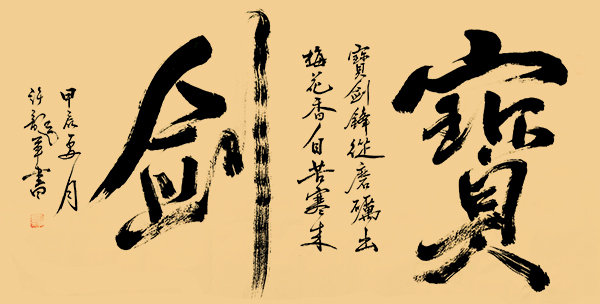 寶
寶劍鋒從磨礪出
梅花香自苦寒来
劍
甲辰夏月
许軍書